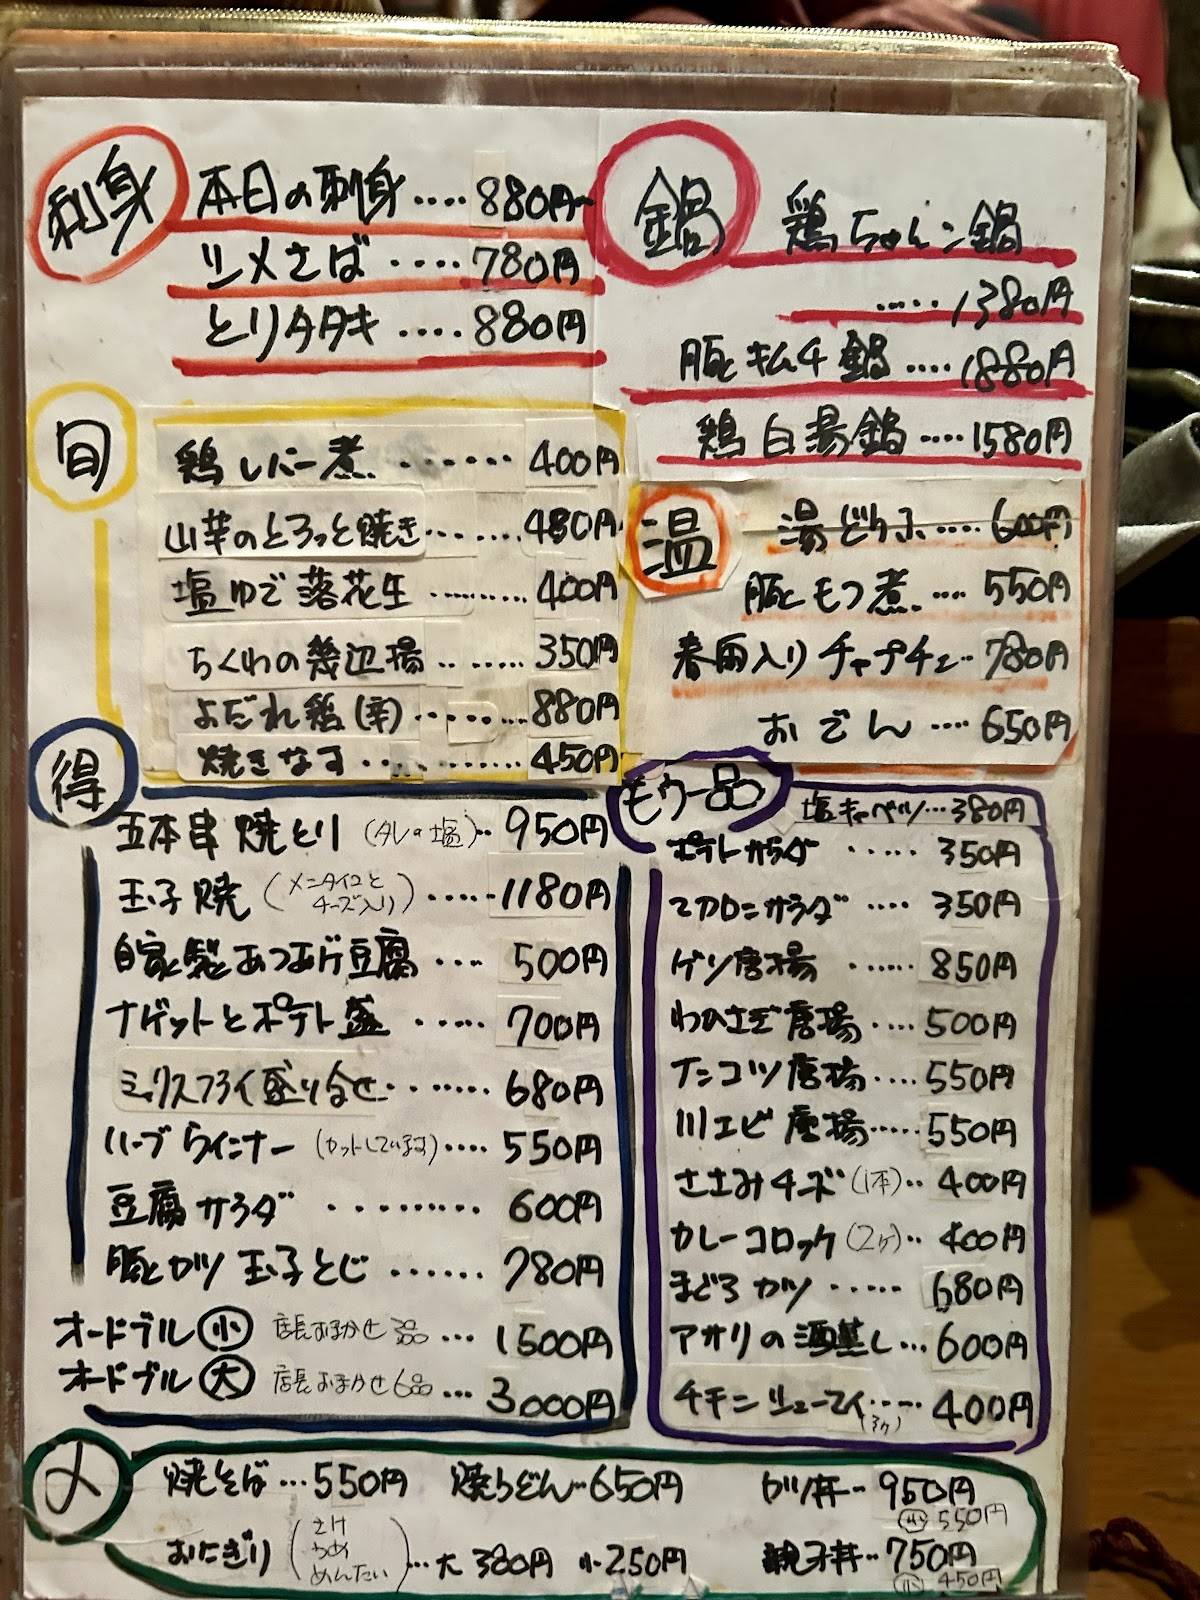 刺身
本日の刺身‥‥880円〜
シメさば‥‥780円
とりタタキ‥‥880円
鍋
鶏ちゃんこ鍋
‥‥1380円
豚キムチ鍋‥‥1880円
鶏白湯鍋‥‥1580円
旬
鶏レバー煮‥‥‥400円
山芋のとろっと焼き‥‥‥480円
塩ゆで落花生‥‥‥400円
ちくわの磯辺揚‥‥‥350円
よだれ鶏(辛)‥‥‥880円
焼きなす‥‥‥450円
温
湯どうふ‥‥600円
豚もつ煮‥‥550円
春雨入りチャプチェ‥780円
おでん‥‥650円
得
五本串焼とり(タレor塩)‥950円
玉子焼(メンタイコとチーズ入り)‥‥1180円
自家製あつあげ豆腐‥‥500円
ナゲットとポテト盛‥‥700円
ミックスフライ盛り合せ‥‥‥680円
ハーブウインナー(カットしています)‥‥550円
豆腐サラダ‥‥‥600円
豚カツ玉子とじ‥‥‥780円
オードブル小 店長おまかせ3品‥1500円
オードブル大 店長おまかせ6品‥3,000円
もう一品
塩キャベツ‥380円
ポテトサラダ‥‥350円
マカロニサラダ‥‥350円
ゲソ唐揚‥‥850円
わかさぎ唐揚‥‥500円
ナンコツ唐揚‥‥550円
川エビ唐揚‥‥550円
ささみチーズ(1本)‥400円
カレーコロッケ(2ケ)‥400円
まぐろカツ‥‥680円
アサリの酒蒸し‥600円
チキンシューマイ‥‥400円
(3ケ)
〆
焼そば‥550円
焼うどん‥650円
カツ丼‥950円
小 550円
おにぎり(さけ うめ めんたい)‥大380円 小250円
親子丼‥750円
小 450円